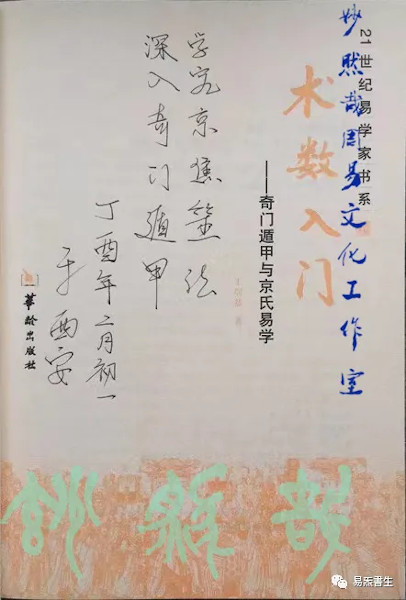 21世纪易学家书系
妙然哉周易文化工作室
术数入门
——奇门遁甲与京氏易学
王居恭 著
学究京焦筮法
深入奇门遁甲
丁酉年二月初一
于西安
华龄出版社
易炁書生